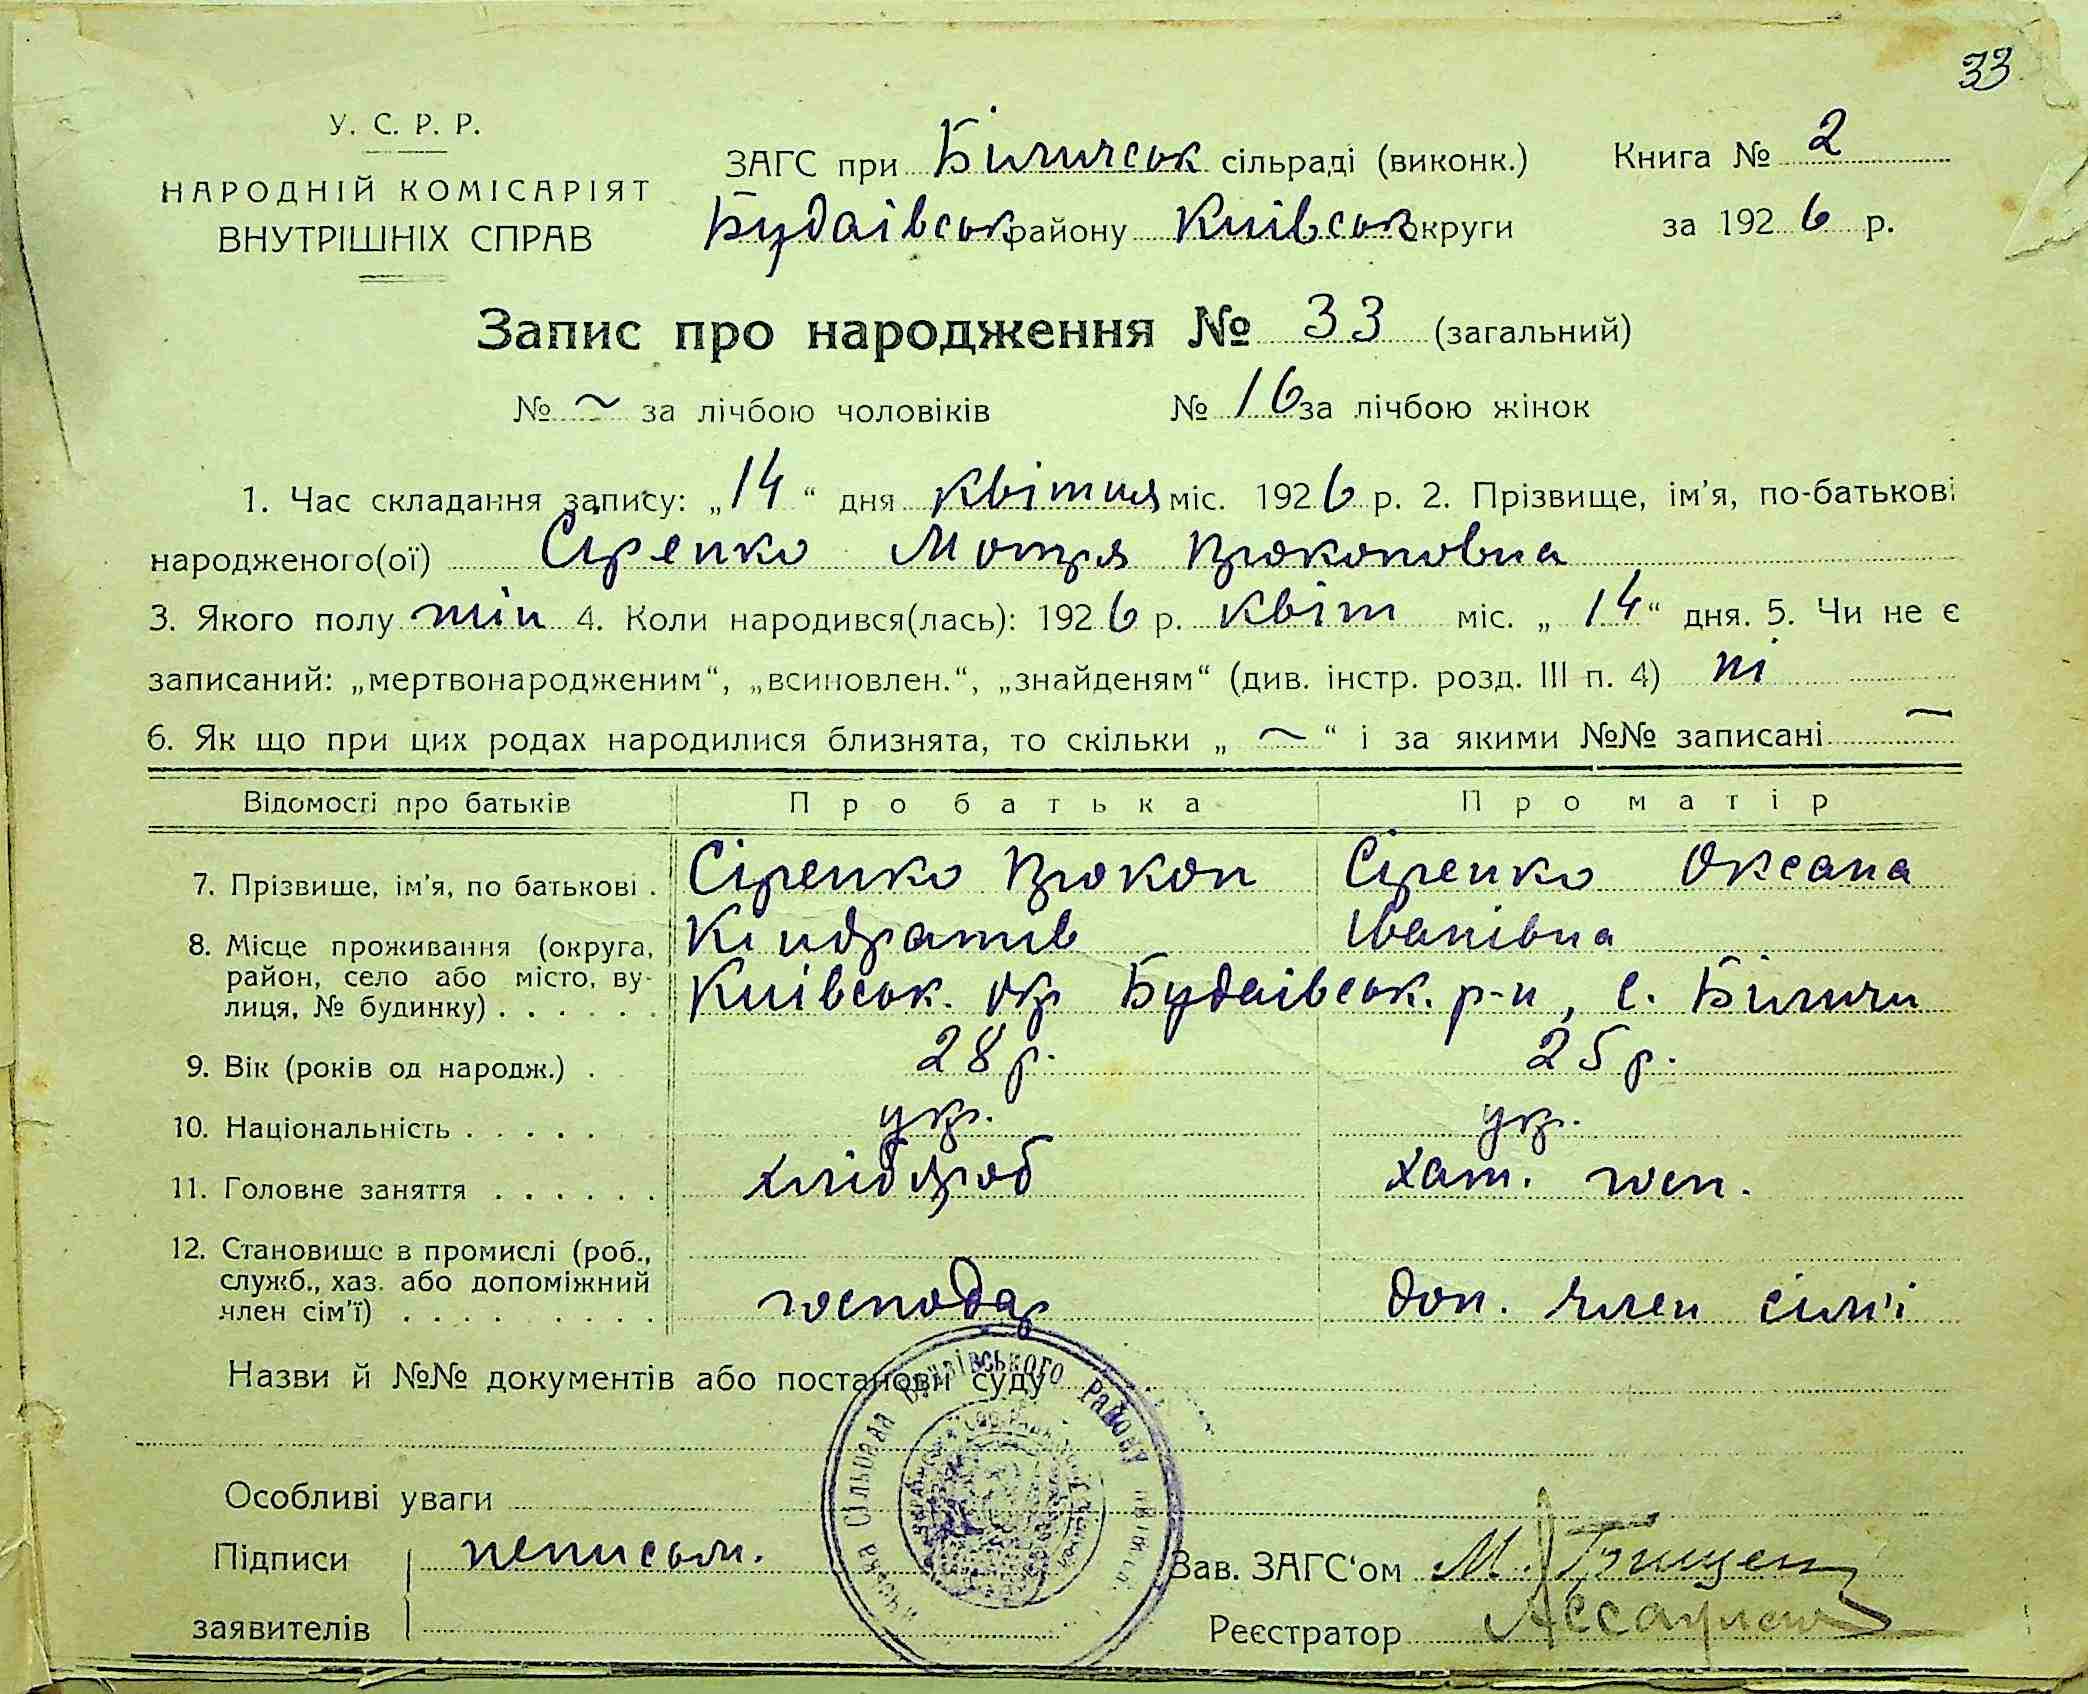 33
У. С. Р. Р.
НАРОДНІЙ КОМІСАРІЯТ
ВНУТРІШНІХ СПРАВ
ЗАГС при Біличськ сільраді (виконк.) Книга № 2
Будаівськ району Київськ округи за 1926 р.
Запис про народження № 33 (загальний)
№ ~ за лічбою чоловіків № 16 за лічбою жінок
1. Час складання запису: „14“ дня квітня міс. 1926 р. 2. Прізвище, ім'я, по-батькові
народженого(ої) Сіренко Мотря Прокоповна
3. Якого полу жін 4. Коли народився(лась): 1926 р. квіт міс. „14“ дня. 5. Чи не є
записаний: „мертвонародженим“, „всиновлен.“, „знайденям“ (див. інстр. розд. III п. 4) ні
6. Як що при цих родах народилися близнята, то скільки „~“ і за якими №№ записані ~
Відомості про батьків Про батька Про матір
7. Прізвище, ім'я, по батькові . Сіренко Прокоп Сіренко Оксана
Кіндратів Іванівна
8. Місце проживання (округа,
район, село або місто, ву-
лиця, № будинку) . . . . . . Київськ. окр Будаівськ. р-н, с. Біличи
9. Вік (років од народж.) . 28 р. 25 р.
10. Національність . . . . . укр. укр.
11. Головне заняття . . . . . . хлібороб хат. госп.
12. Становище в промислі (роб.,
служб., хаз. або допоміжний
член сім'ї) . . . . . . . . . господар доп. член сімї
Назви й №№ документів або постанови суду
Сільрада Будаївського Району
Особливі уваги
Підписи неписьм. Зав. ЗАГС'ом М. Грищен
заявителів Реєстратор